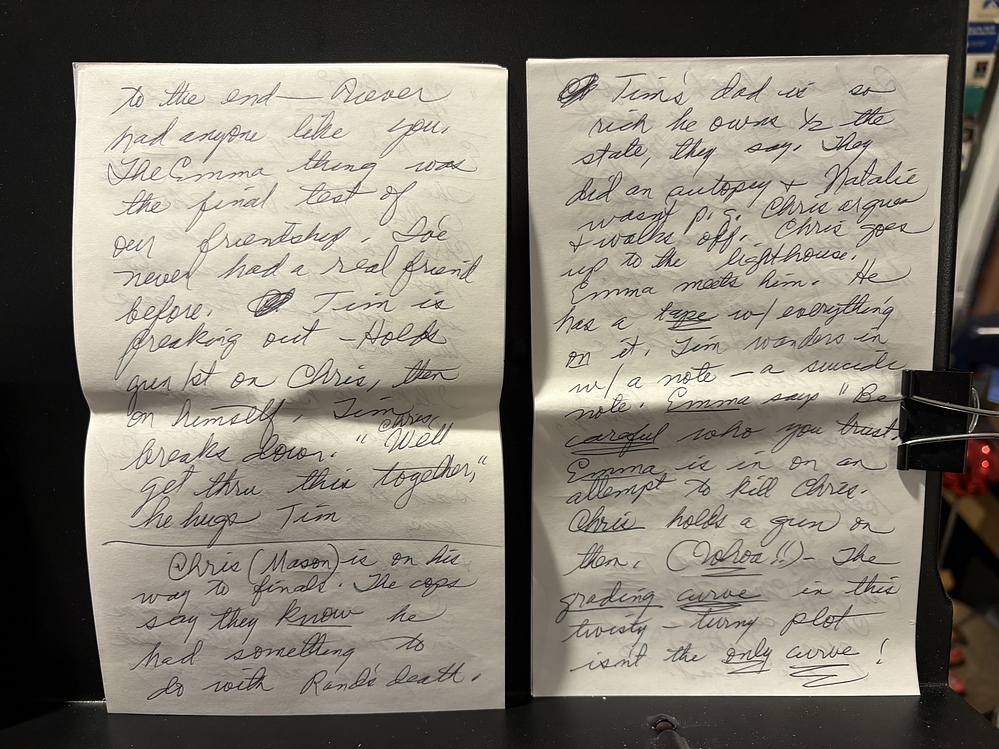 to the end — Never
had anyone like you.
The Emma thing was
the final test of
our friendship. I've
never had a real friend
before. Tim is
freaking out – Holds
gun 1st on Chris, then
on himself. Tim
breaks down. Chris, "We'll
get thru this together,"
he hugs Tim
Chris (Mason) is on his
way to finals. The cops
say they know he
had something to
do with Rand's death.
Tim's dad is so
rich he owns ½ the
state, they say. They
did an autopsy + Natalie
wasn't p.g. Chris argues
+ walks off. Chris goes
up to the lighthouse.
Emma meets him. He
has a tape w/ everything
on it. Tim wanders in
w/ a note – a suicide
note. Emma says "Be
careful who you trust.
Emma is in on an
attempt to kill Chris.
Chris holds a gun on
them. (Whoa!!) – The
grading curve in this
twisty – turny plot
isn't the only curve!